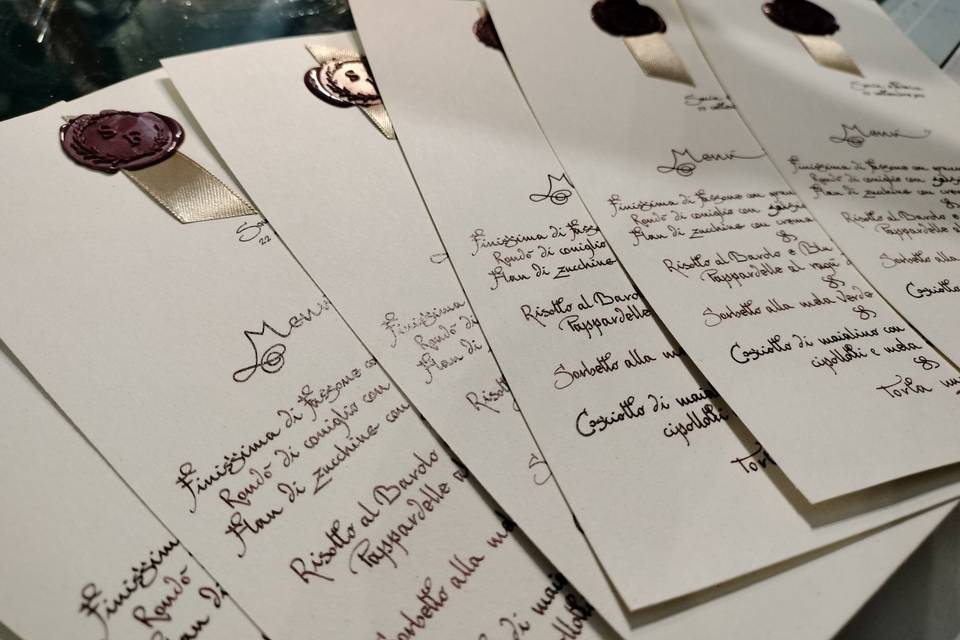 Finissim
Rondò
Flan di
22
Menù
Finissima di fassone
Rondò di coniglio con
Flan di zucchine con
Risotto al Barolo
Pappardelle a
Sorbetto alla me
Cosciotto di mai
Finissima
Rondò di
Flan di
Risotto
S
M
Finissima di fasso
Rondò di coniglio
Flan di zucchine
Risotto al Baro
Pappardelle
Sorbetto alla m
Cosciotto di maia
cipollotti
Tor
Menù
Finissima di fassone con gran
Rondò di coniglio con salsa
Flan di zucchine con crema
Risotto al Barolo e Blu
Pappardelle al ragù
Sorbetto alla mela verde
Cosciotto di maialino con
cipollotti e mela
Torta
settembre
Menù
Finissima di fassone con gran
Rondò di coniglio con salsa
Flan di zucchine con crema
Risotto al Baro
Pappardelle al
Sorbetto alla
Cosciotto